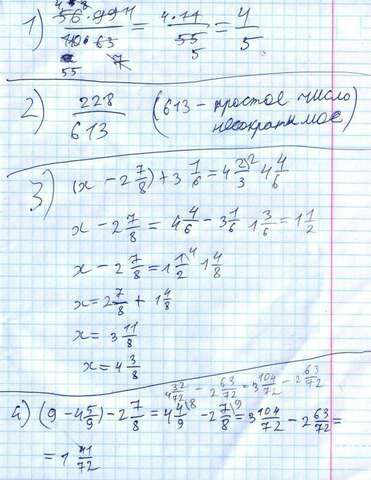 1) 56 · 99 / 110 · 63 = 4 · 11 / 55 = 4/5
55 7 5
2) 228/613 (613 - простое число
несократимое)
3) (x - 2 7/8) + 3 1/6 = 4 2/3 \2 4 4/6
x - 2 7/8 = 4 4/6 - 3 1/6 1 3/6 = 1 1/2
x - 2 7/8 = 1 1/2 \4 1 4/8
x = 2 7/8 + 1 4/8
x = 3 11/8
x = 4 3/8
4 32/72 - 2 63/72 = 3 104/72 - 2 63/72
4) (9 - 4 5/9) - 2 7/8 = 4 4/9 \8 - 2 7/8 \9 = 3 104/72 - 2 63/72 =
= 1 41/72